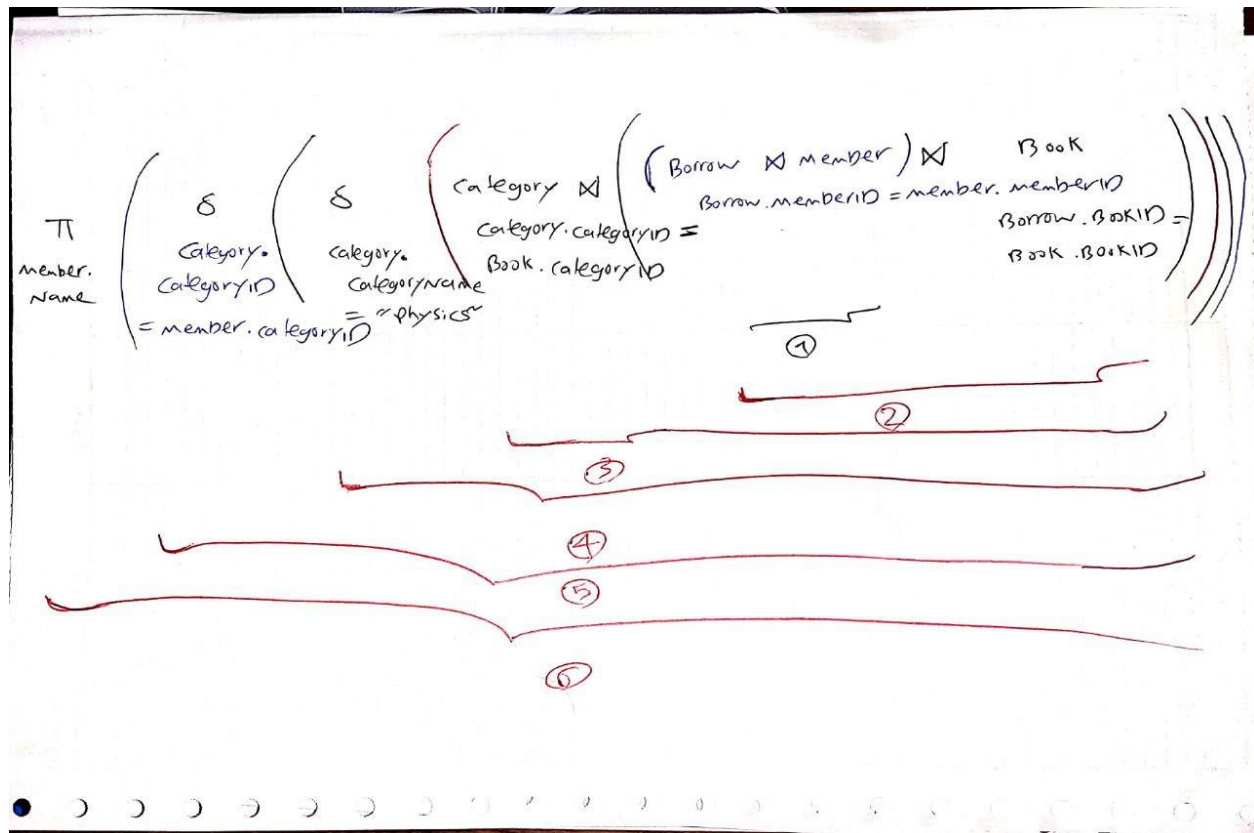 π
member.
Name
( δ
category.
categoryID
= member.categoryID
( δ
category.
categoryName
= "physics"
( category ⋈
category.categoryID =
Book.categoryID
( ( Borrow ⋈ member ) ⋈ Book
Borrow.memberID = member.memberID
Borrow.BookID =
Book.BookID
) ) ) ) )
①
②
③
④
⑤
⑥